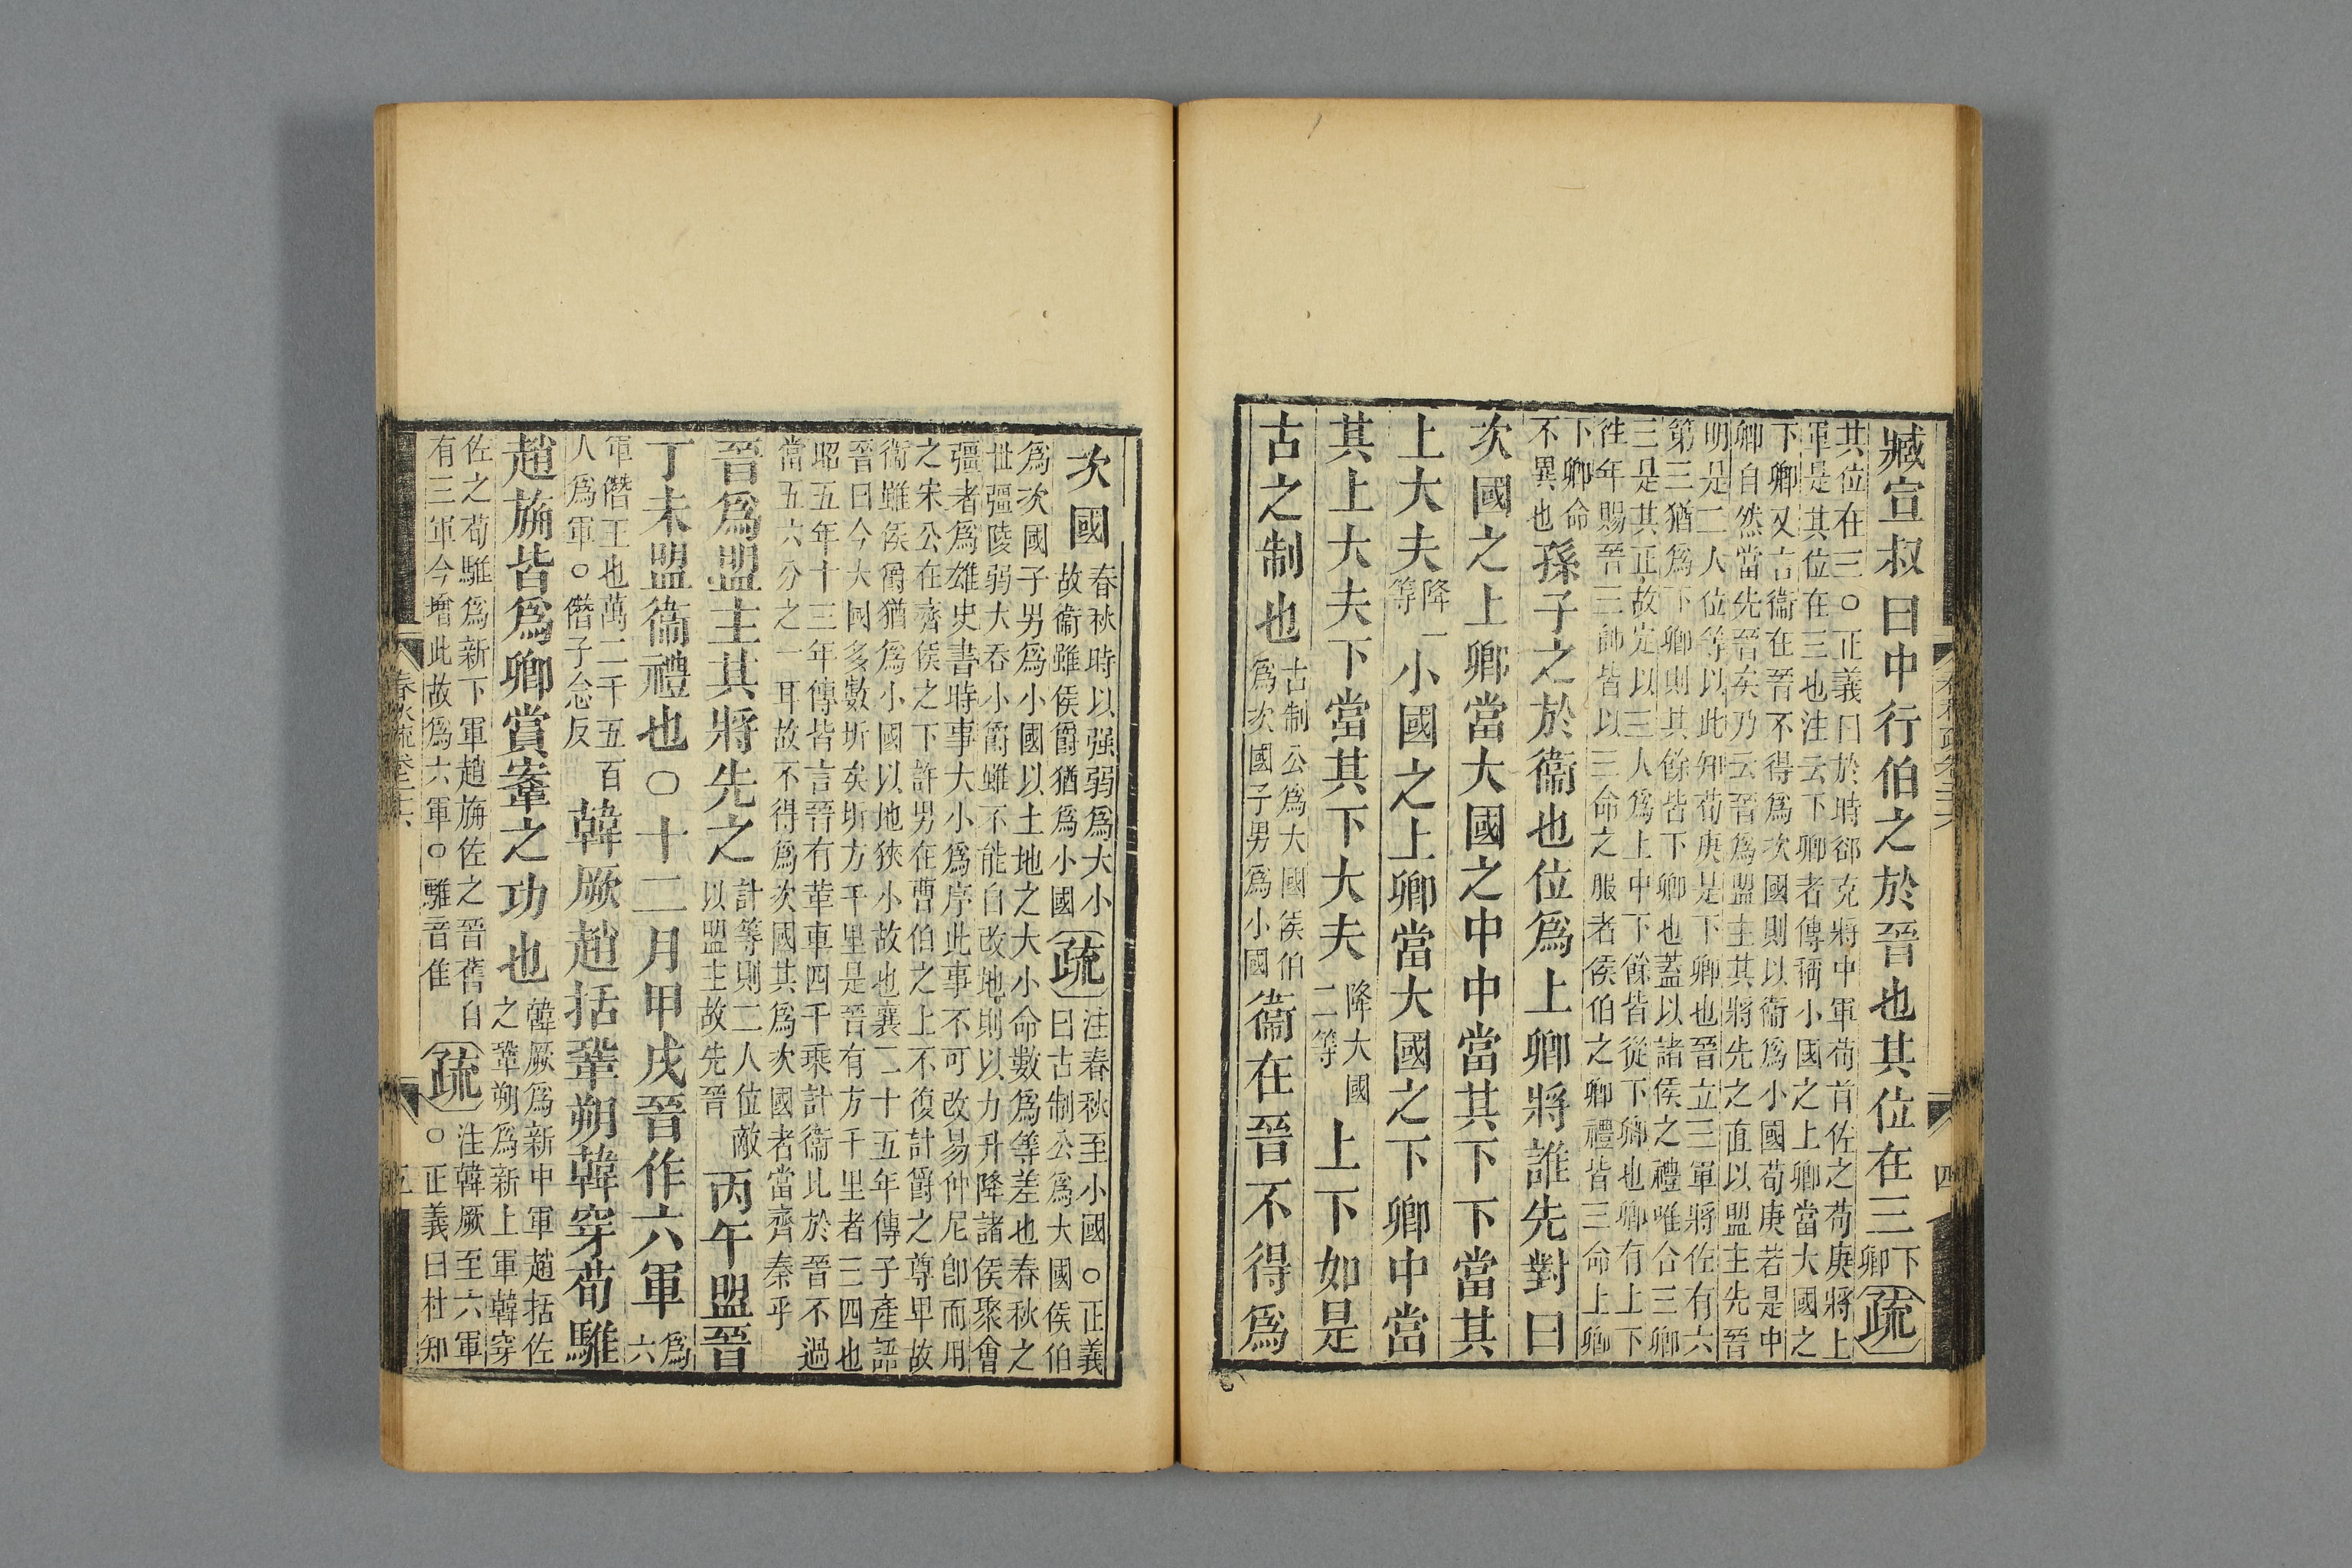 臧宣叔曰中行伯之於晉也其位在三下卿疏
其位在三○正義曰於時郤克將中軍荀首佐之荀庚將上
軍是其位在三也注云下卿者傳稱小國之上卿當大國之
下卿又言衞在晉不得爲次國則以衞爲小國荀庚若是中
卿自然當先晉矣乃云晉爲盟主其將先之直以盟主先晉
明是二人位等以此知荀庚是下卿也晉立三軍將佐有六
第三猶爲下卿則其餘皆下卿也蓋以諸侯之禮唯合三卿
三是其正故定以三人爲上中下餘皆從下卿也卿有上下
往年賜晉三帥皆以三命之服者侯伯之卿禮皆三命上卿
下卿命
不異也
孫子之於衞也位爲上卿將誰先對曰
次國之上卿當大國之中中當其下下當其
上大夫降一等小國之上卿當大國之下卿中當
其上大夫下當其下大夫降大國二等上下如是
古之制也古制公爲大國侯伯爲次國子男爲小國衞在晉不得爲
次國春秋時以强弱爲大小故衞雖侯爵猶爲小國疏注春秋至小國○正義曰古制公爲大國侯伯
爲次國子男爲小國以土地之大小命數爲等差也春秋之
世彊陵弱大吞小爵雖不能自改地則以力升降諸侯聚會
彊者爲雄史書時事大小爲序此事不可改易仲尼卽而用
之宋公在齊侯之下許男在曹伯之上不復計爵之尊卑故
衞雖侯爵猶爲小國以地狹小故也襄二十五年傳子產語
晉曰今大國多數圻矣圻方千里是晉有方千里者三四也
昭五年十三年傳皆言晉有革車四千乘計衞比於晉不過
當五六分之一耳故不得爲次國其爲次國者當齊秦乎
晉爲盟主其將先之計等則二人位敵以盟主故先晉丙午盟晉
丁未盟衞禮也○十二月甲戌晉作六軍爲六
軍僭王也萬二千五百
人爲軍○僭子念反
韓厥趙括鞏朔韓穿荀騅
趙旃皆爲卿賞鞌之功也韓厥爲新中軍趙括佐之鞏朔爲新上軍韓穿
佐之荀騅爲新下軍趙旃佐之晉舊自
有三軍今增此故爲六軍○騅音隹
疏注韓厥至六軍○正義曰杜知
春秋疏卷二十六
四
五